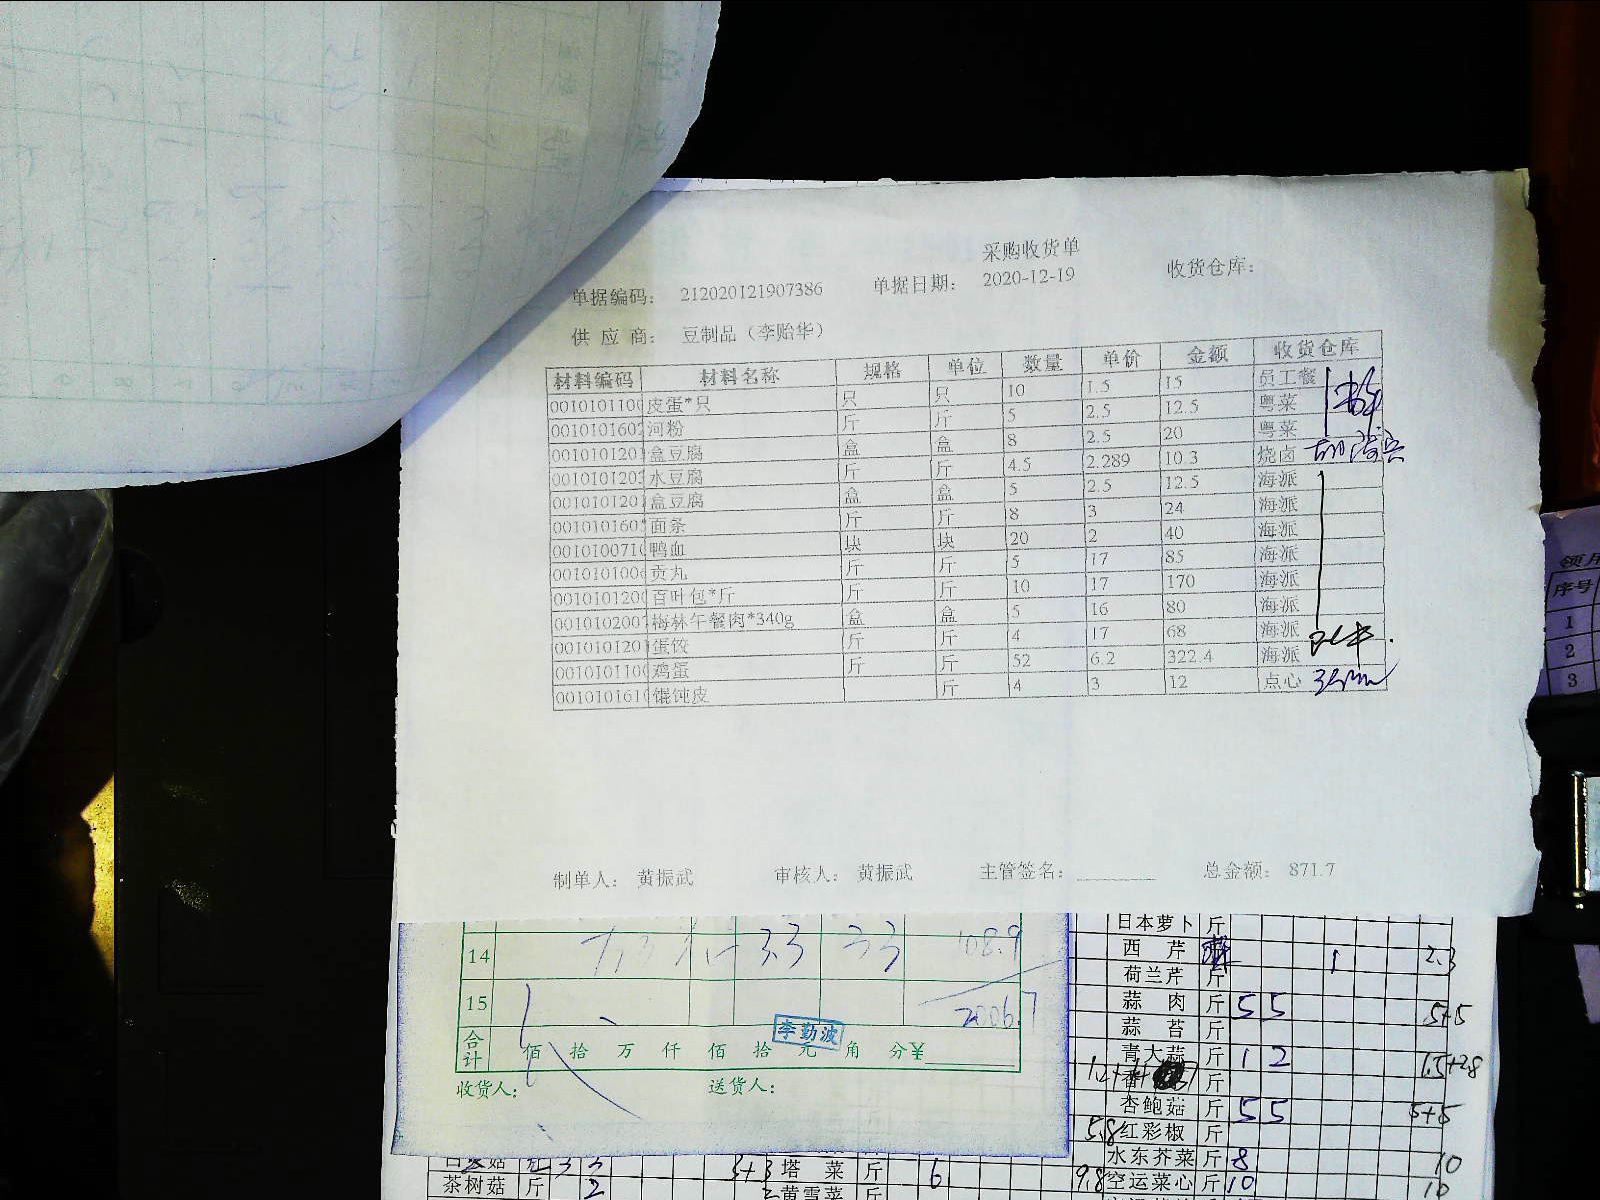 采购收货单
单据编码: 212020121907386 单据日期: 2020-12-19 收货仓库:
供应商: 豆制品（李贻华）
材料编码 材料名称 规格 单位 数量 单价 金额 收货仓库
0010101100 皮蛋*只 只 只 10 1.5 15 员工餐
001010160 河粉 斤 斤 5 2.5 12.5 粤菜
001010120 盒豆腐 盒 盒 8 2.5 20 粤菜
001010120 水豆腐 斤 斤 4.5 2.289 10.3 烧卤
001010120 盒豆腐 盒 盒 5 2.5 12.5 海派
001010160 面条 斤 斤 8 3 24 海派
001010071 鸭血 块 块 20 2 40 海派
001010100 贡丸 斤 斤 5 17 85 海派
001010120 百叶包*斤 斤 斤 10 17 170 海派
001010200 梅林午餐肉*340g 盒 盒 5 16 80 海派
001010120 蛋饺 斤 斤 4 17 68 海派
001010110 鸡蛋 斤 斤 52 6.2 322.4 海派
001010161 馄饨皮 斤 4 3 12 点心
制单人: 黄振武 审核人: 黄振武 主管签名: 总金额: 871.7
14 3.3 33 108.9
15 2006.7
合计 佰 拾 万 仟 佰 拾 元 角 分¥
李勤波
收货人: 送货人:
日本萝卜 斤
西芹 1 2.3
荷兰芹 斤
蒜肉 斤 5 5 5+5
蒜苔 斤
青大蒜 斤 1 2 1.5+2.8
斤
杏鲍菇 斤 5 5 5+5
5.8 红彩椒 斤
水东芥菜 斤 8 10
空运菜心 斤 10 10
3+3 塔菜 斤 6 9.8
茶树菇 斤 2
黄雪菜 斤
领用
序号
1
2
3